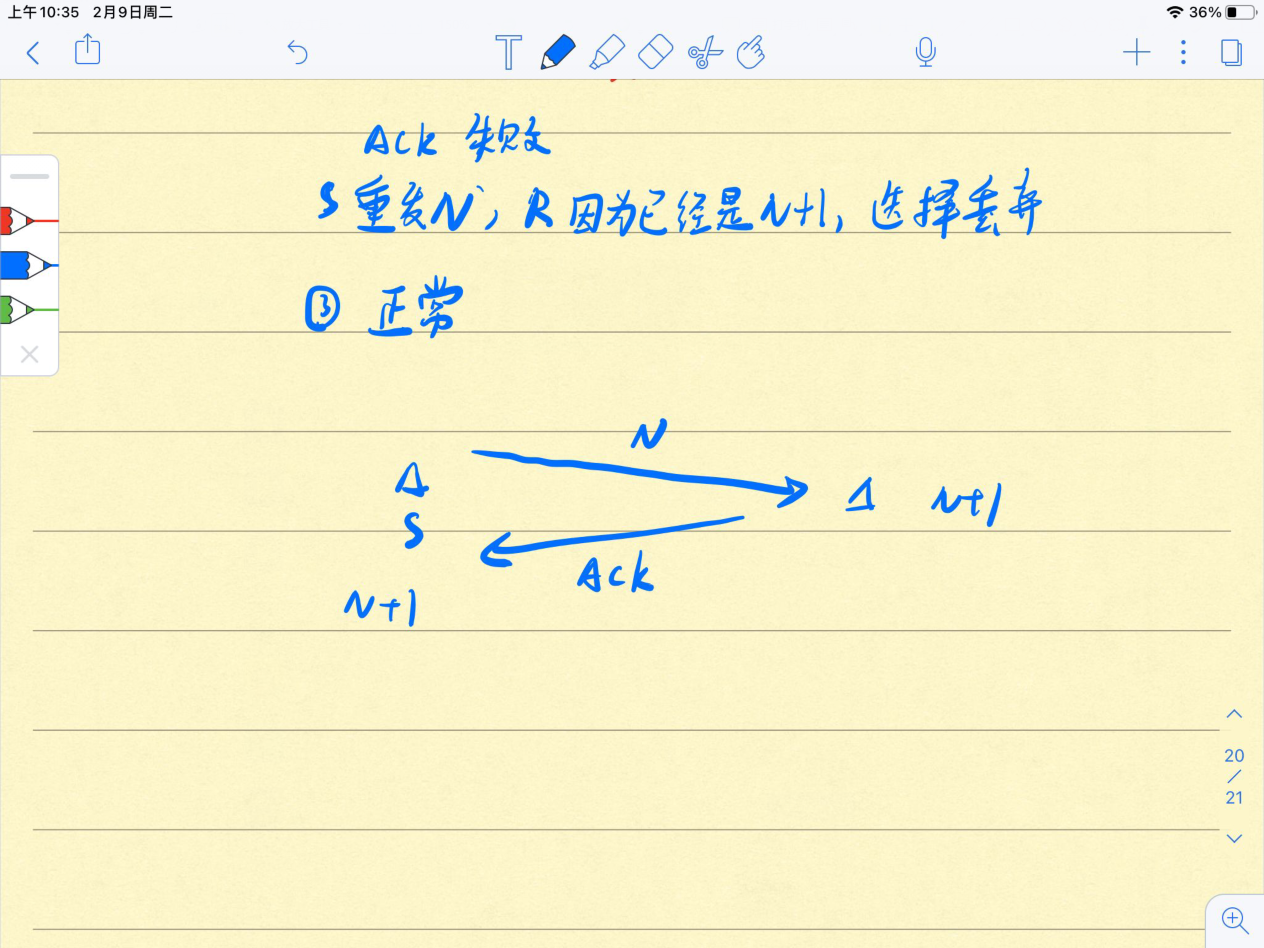 上午10:35 2月9日周二
36%
T
Ack 失败
S 重发N, R 因为已经是N+1, 选择丢弃
③ 正常
N
A
N+1
S
Ack
N+1
20
/
21